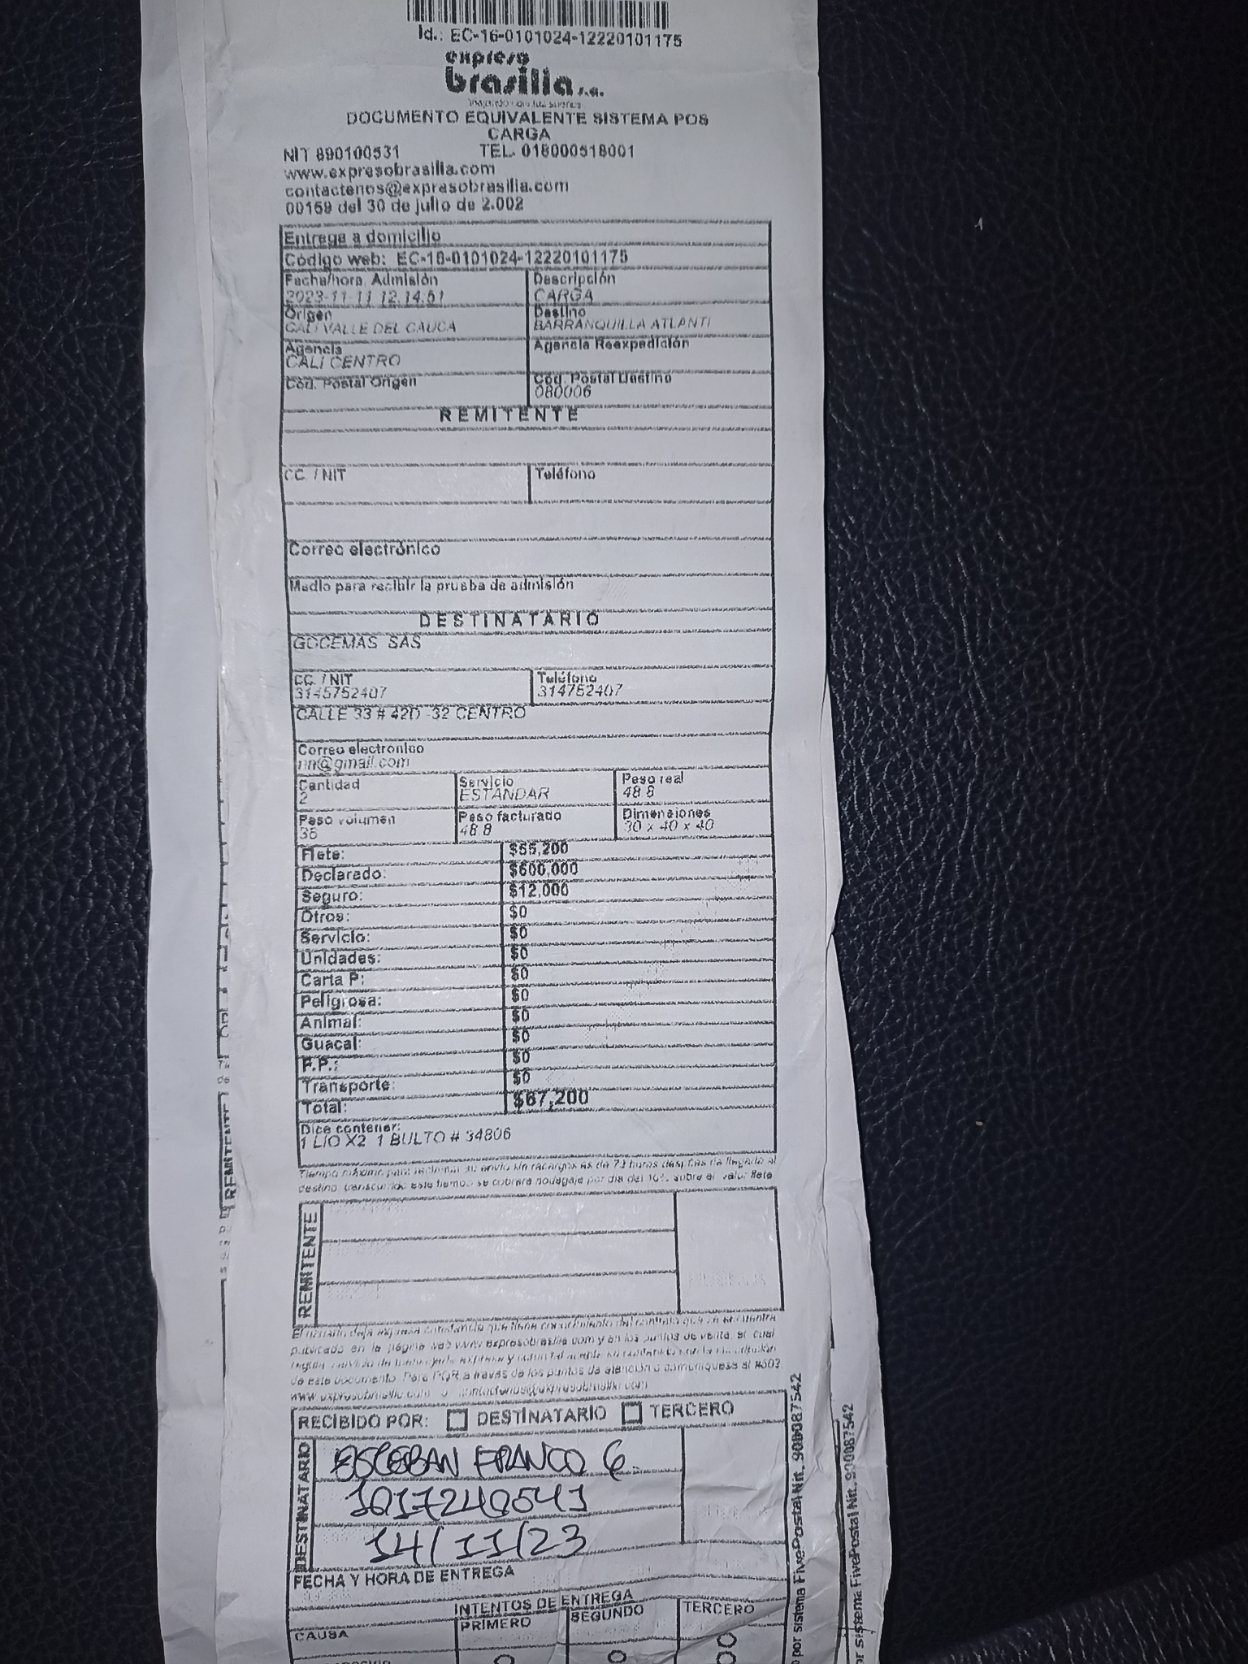 Id.: EC-16-0101024-12220101175
expreso
brasilia s.a.
DOCUMENTO EQUIVALENTE SISTEMA POS
CARGA
NIT 890100531 TEL. 018000518001
www.expresobrasilia.com
contactenos@expresobrasilia.com
00159 del 30 de julio de 2.002
Entrega a domicilio
Código web: EC-16-0101024-12220101175
Fecha/hora Admisión Descripción
2023-11-11 12:14:51 CARGA
Origen Destino
CALI VALLE DEL CAUCA BARRANQUILLA ATLANTI
Agencia Agencia Reexpedición
CALI CENTRO
Cód. Postal Origen Cód. Postal Destino
080006
REMITENTE
CC. / NIT Teléfono
Correo electrónico
Medio para recibir la prueba de admisión
DESTINATARIO
GOCEMAS SAS
CC. / NIT Teléfono
3145752407 314752407
CALLE 33 # 42D -32 CENTRO
Correo electronico
nn@gmail.com
Cantidad Servicio Peso real
2 ESTANDAR 48.8
Peso volumen Peso facturado Dimensiones
36 48.8 30 x 40 x 40
Flete: $55,200
Declarado: $600,000
Seguro: $12,000
Otros: $0
Servicio: $0
Unidades: $0
Carta P: $0
Peligrosa: $0
Animal: $0
Guacal: $0
P.P.: $0
Transporte: $0
Total: $67,200
Dice contener:
1 LIO X2 1 BULTO # 34806
Tiempo máximo para reclamar su envío sin recargos es de 72 horas después de llegado al
destino, transcurrido este tiempo se cobrará bodegaje por día del 10% sobre el valor flete
REMITENTE
El usuario deja expresa constancia que tiene conocimiento del contrato que se encuentra
publicado en la página web www.expresobrasilia.com y en los puntos de venta, el cual
de este documento. Para PQR a través de los puntos de atención o comuníquese al #502
www.expresobrasilia.com o contactenos@expresobrasilia.com
RECIBIDO POR: DESTINATARIO TERCERO
DESTINATARIO
ESTEBAN FRANCO G.
1017240541
14/11/23
FECHA Y HORA DE ENTREGA
INTENTOS DE ENTREGA
CAUSA PRIMERO SEGUNDO TERCERO
por sistema FivePostal Nit. 900087542
or sistema FivePostal Nit. 900087542
REMITENTE